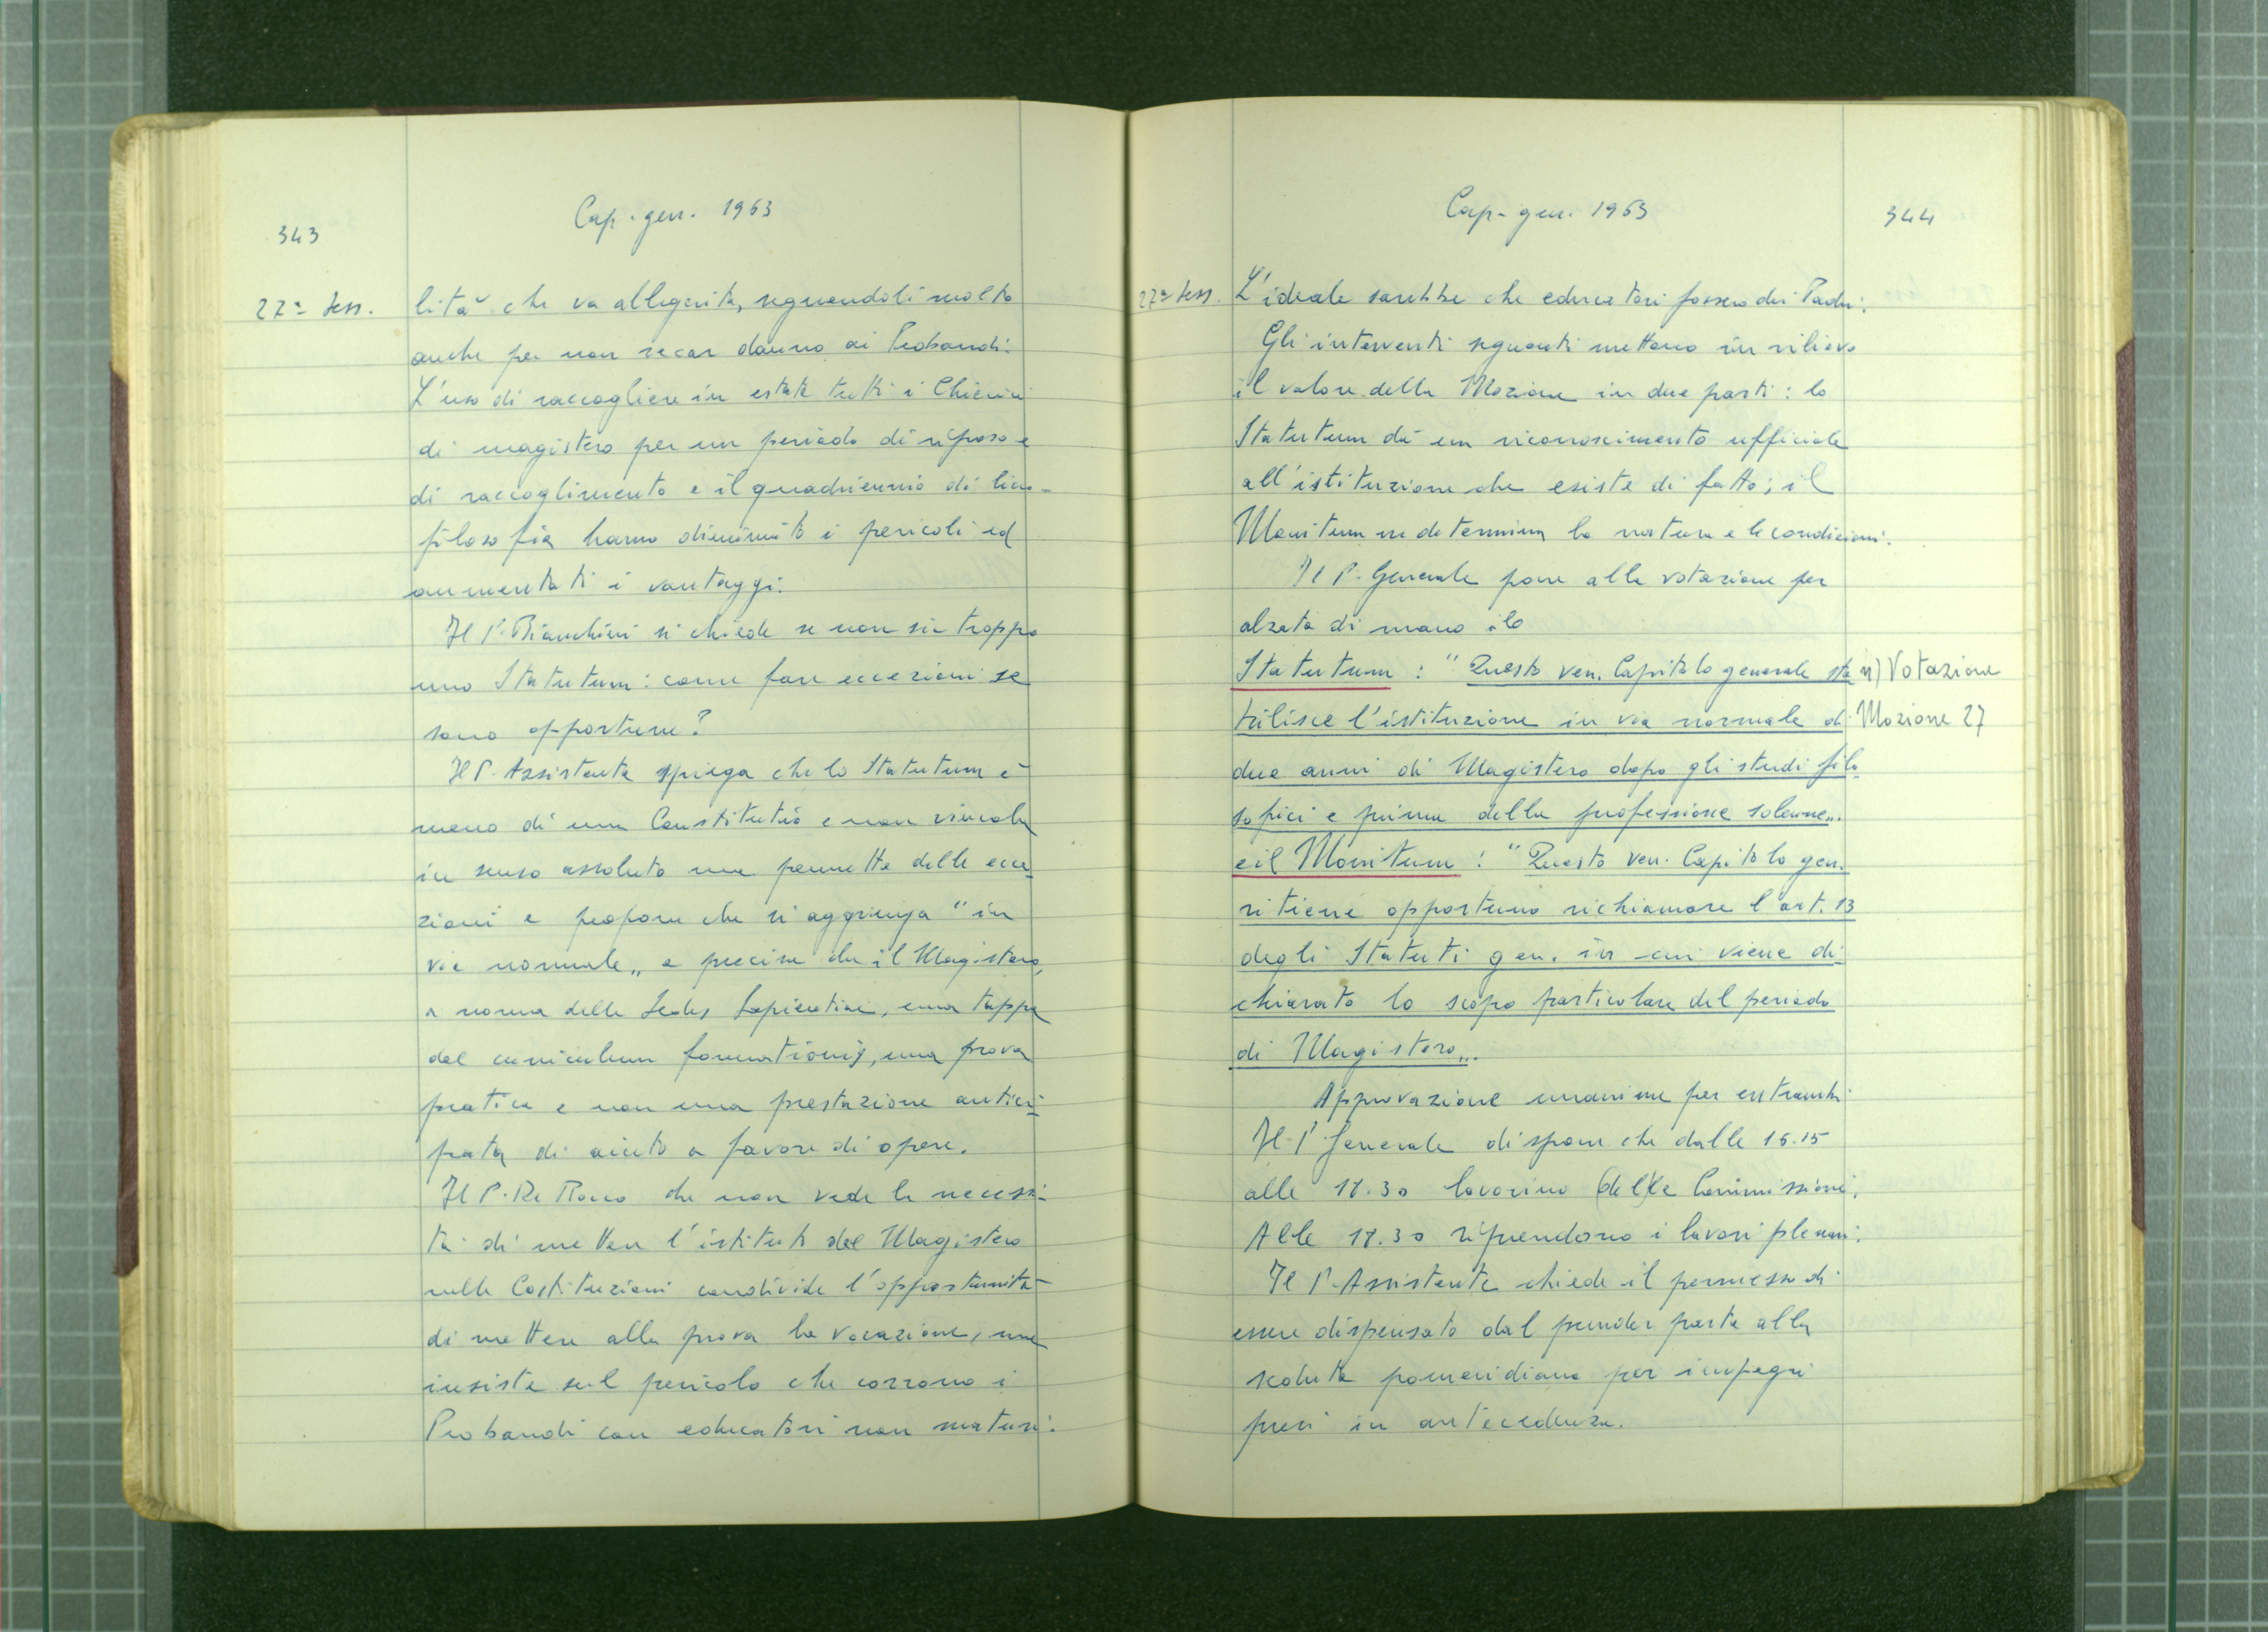 343
Cap. gen. 1963
27ª Sess.
lità che va alleggerita, seguendoli molto
anche per non recar danno ai Probandi.
L'uso di raccogliere in estate tutti i Chierici
di magistero per un periodo di riposo e
di raccoglimento e il quadriennio di liceo-
filosofia hanno diminuito i pericoli ed
aumentati i vantaggi.
Il P. Bianchini si chiede se non sia troppo
uno Statutum: come fare eccezioni se
sono opportune?
Il P. Assistente spiega che lo Statutum è
meno di una Constitutio e non vincola
in senso assoluto ma permette delle ecce
zioni e propone che si aggiunga "in
via normale" e precisa che il Magistero,
a norma della Sedes Sapientiae, è una tappa
del curriculum formationis, una prova
pratica e non una prestazione antici-
pata di aiuto a favore di opere.
Il P. De Rocco che non vede la necessi-
tà di metter l'istituto del Magistero
nelle Costituzioni condivide l'opportunità
di mettere alla prova la vocazione, ma
insiste sul pericolo che corrono i
Probandi con educatori non maturi.
Cap. gen. 1963
344
27ª Sess.
L'ideale sarebbe che educatori fossero dei Padri.
Gli interventi seguenti mettono in rilievo
il valore della Mozione in due parti: lo
Statutum dà un riconoscimento ufficiale
all'istituzione che esiste di fatto; il
Monitum ne determina la natura e le condizioni.
Il P. Generale pone alla votazione per
alzata di mano ilo
Statutum : "Questo ven. Capitolo generale sta
bilisce l'istituzione in via normale di
due anni di Magistero dopo gli studi filo
sofici e prima della professione solenne".
e il Monitum : "Questo ven. Capitolo gen.
ritiene opportuno richiamare l'art. 13
degli Statuti gen. in cui viene di-
chiarato lo scopo particolare del periodo
di Magistero".
n) Votazione
Mozione 27
Approvazione unanime per entrambi
Il P. Generale dispone che dalle 16.15
alle 17.30 lavorino (del)le Commissioni.
Alle 17.30 riprendono i lavori plenari.
Il P. Assistente chiede il permesso di
essere dispensato dal prender parte alla
seduta pomeridiana per impegni
presi in antecedenza.